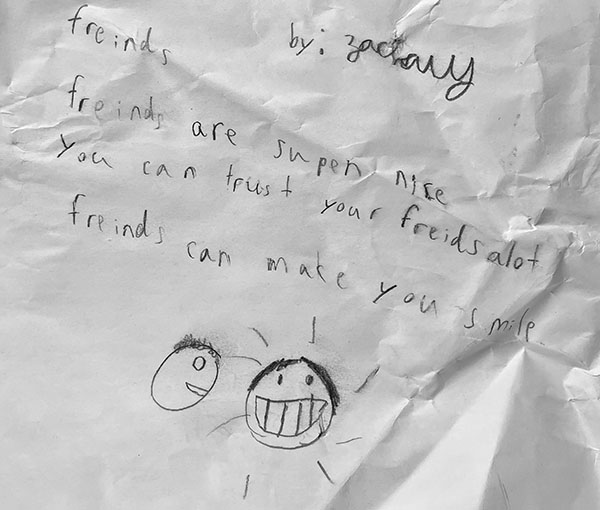 freinds by: zactary
freinds are supen nice
you can trust your freids alot
freinds can make you smile